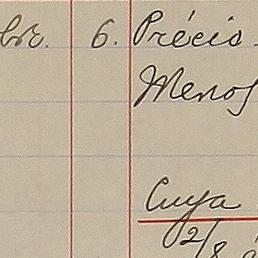 bre. 6. Précio
Menos
Cuya
2/8 á